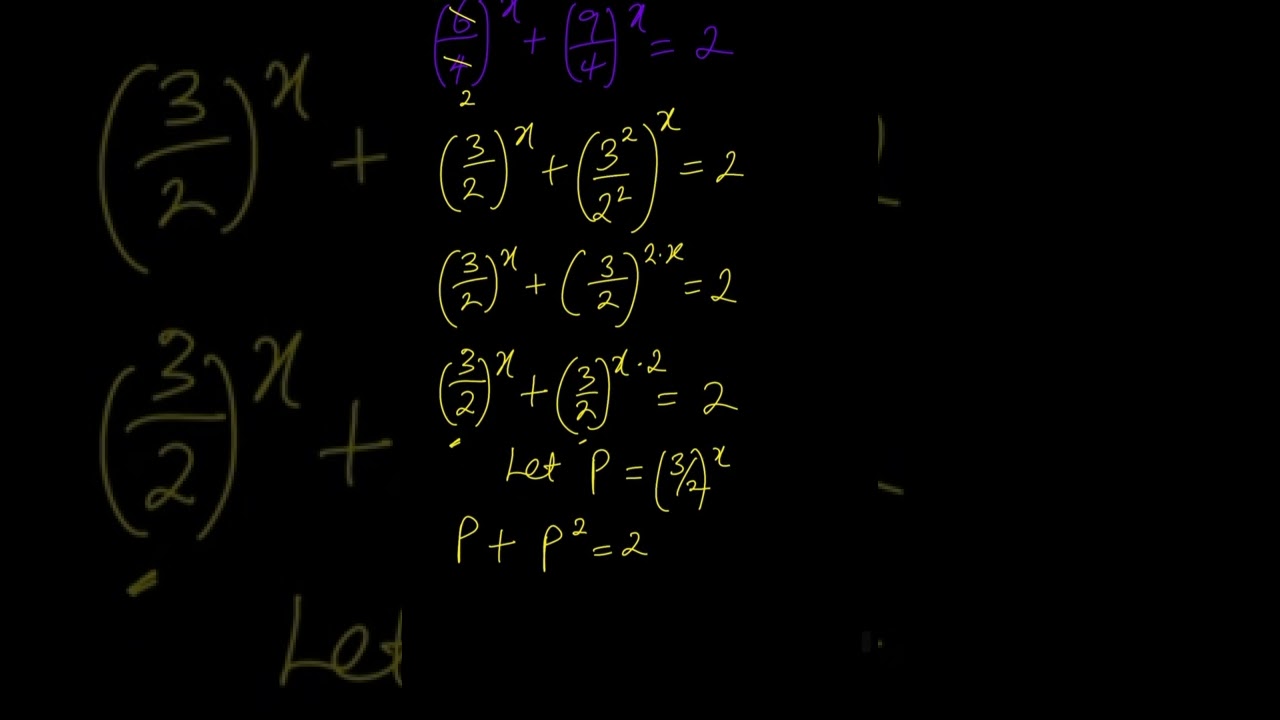 (6/4)^x + (9/4)^x = 2
2
(3/2)^x + (3^2/2^2)^x = 2
(3/2)^x + (3/2)^{2·x} = 2
(3/2)^x + (3/2)^{x·2} = 2
Let P = (3/2)^x
P + P^2 = 2
(3/2)^x +
(3/2)^x +
Let